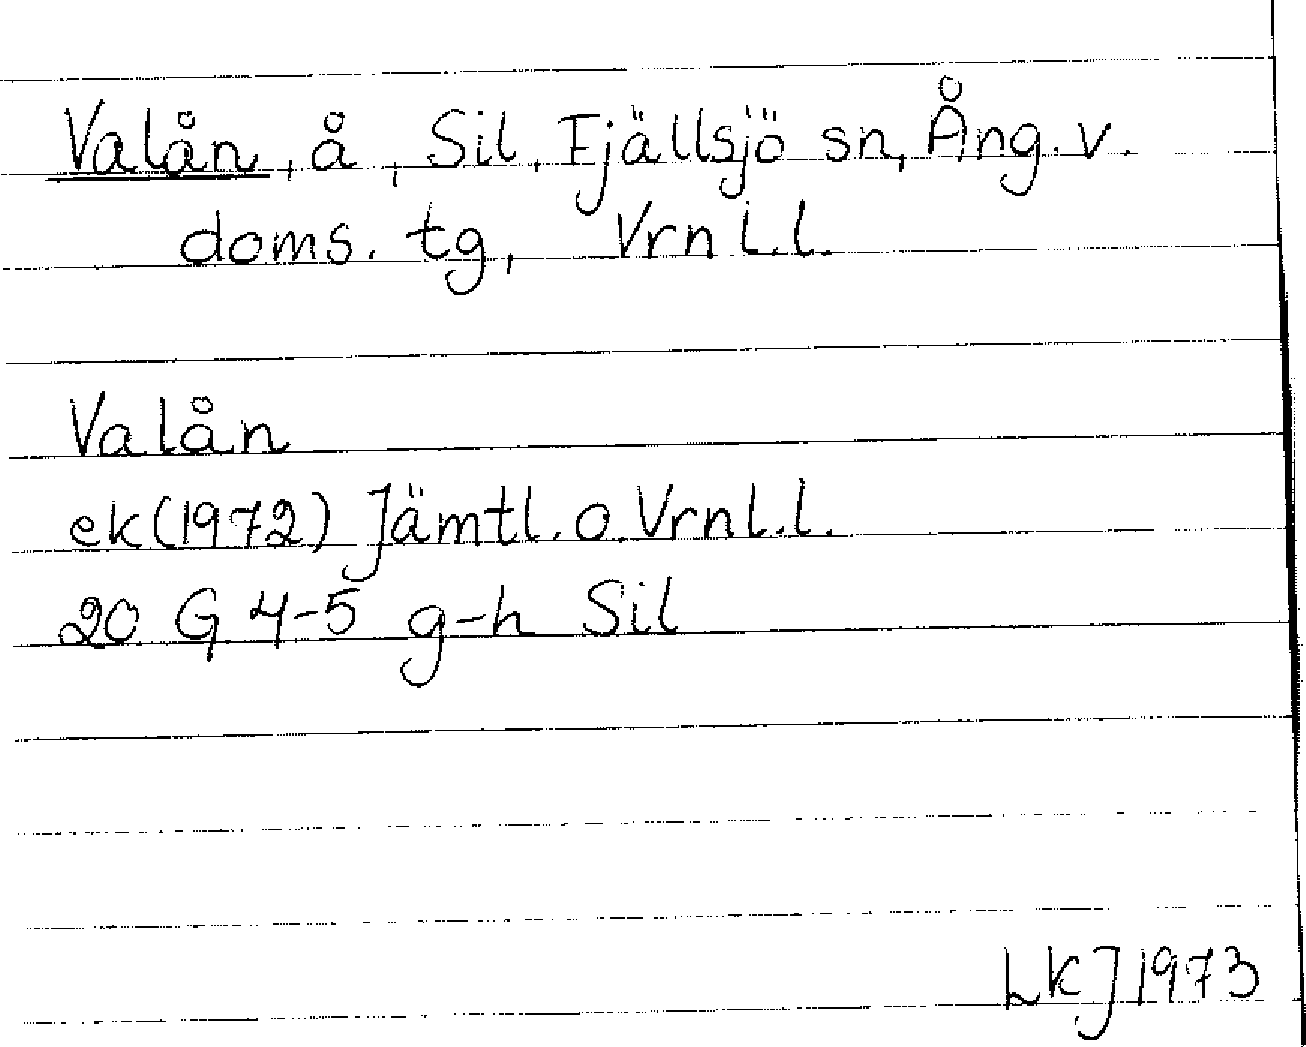 Valån, å, Sil, Fjällsjö sn, Ång. v.
doms. tg, Vrn l.l.
Valån
ek (1972) Jämtl. o. Vrnl.l.
20 G 4-5 g-h Sil
LKJ 1973